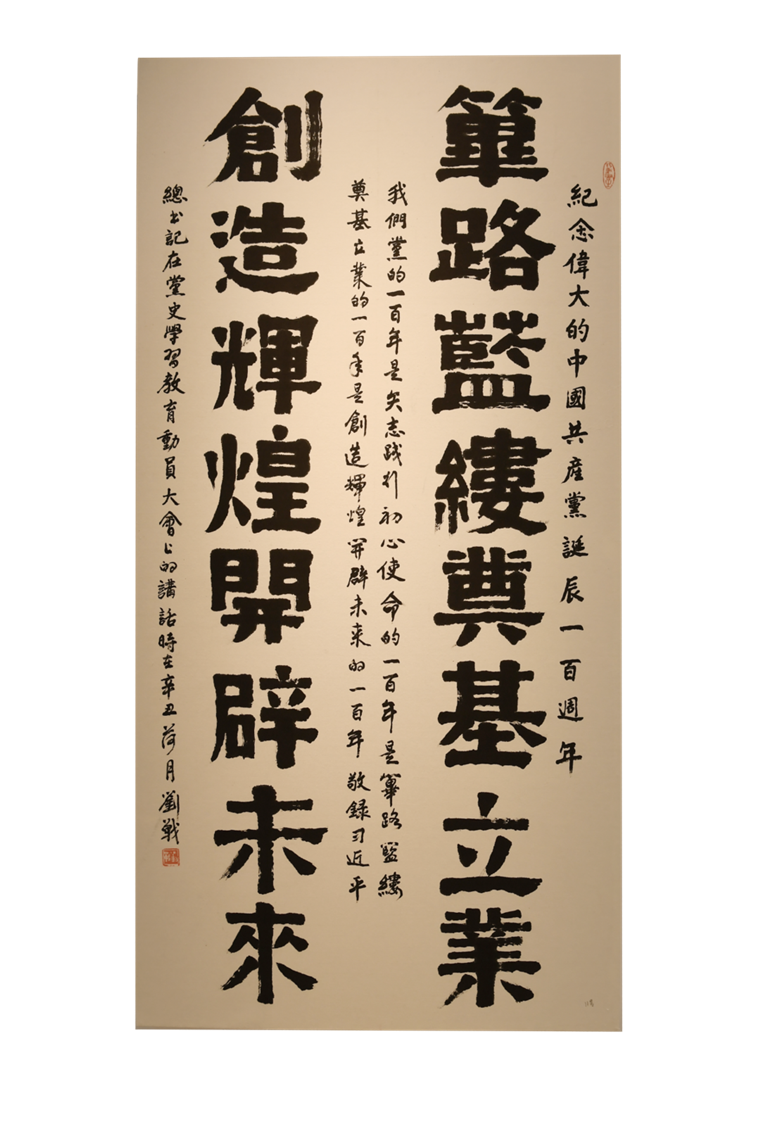 紀念偉大的中國共産黨誕辰一百週年
篳路藍縷奠基立業
我們黨的一百年是矢志践行初心使命的一百年是篳路藍縷
奠基立業的一百年是創造輝煌開辟未來的一百年敬録习近平
創造輝煌開辟未來
總书記在黨史學習教育動員大會上的講話時在辛丑荷月劉戰